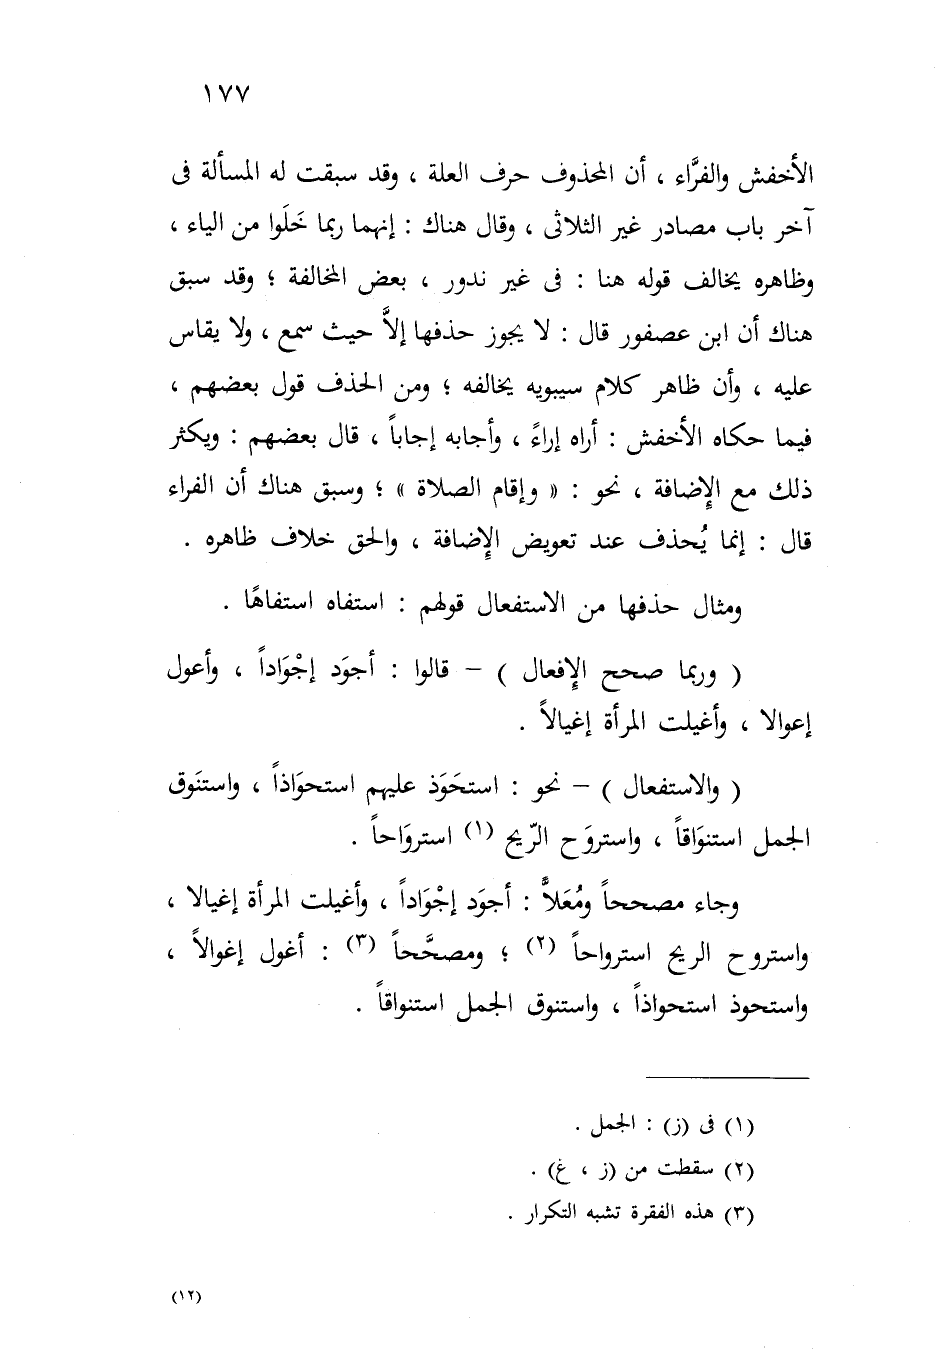 ١٧٧
الأخفش والفرَّاء ، أن المحذوف حرف العلة ، وقد سبقت له المسألة فى
آخر باب مصادر غير الثلاثى ، وقال هناك : إنهما ربما خَلَوا من الياء ،
وظاهره يخالف قوله هنا : فى غير ندور ، بعض المخالفة ؛ وقد سبق
هناك أن ابن عصفور قال : لا يجوز حذفها إلاَّ حيث سمع ، ولا يقاس
عليه ، وأن ظاهر كلام سيبويه يخالفه ؛ ومن الحذف قول بعضهم ،
فيما حكاه الأخفش : أراه إراءً ، وأجابه إجاباً ، قال بعضهم : ويكثر
ذلك مع الإضافة ، نحو : « وإقام الصلاة » ؛ وسبق هناك أن الفراء
قال : إنما يُحذف عند تعويض الإضافة ، والحق خلاف ظاهره .
ومثال حذفها من الاستفعال قولهم : استفاه استفاهًا .
( وربما صحح الإفعال ) – قالوا : أجوَد إجْوَاداً ، وأعول
إعوالا ، وأغيلت المرأة إغيالاً .
( والاستفعال ) – نحو : استحَوَذ عليهم استحوَاذاً ، واستنَوق
الجمل استنوَاقاً ، واستروَح الرّيح (١) استروَاحاً .
وجاء مصححاً ومُعَلاًّ : أجوَد إجْوَاداً ، وأغيلت المرأة إغيالا ،
واستروح الريح استرواحاً (٢) ؛ ومصحَّحاً (٣) : أغول إغوالاً ،
واستحوذ استحواذاً ، واستنوق الجمل استنواقاً .
(١) فى (ز) : الجمل .
(٢) سقطت من (ز ، غ) .
(٣) هذه الفقرة تشبه التكرار .
(١٢)